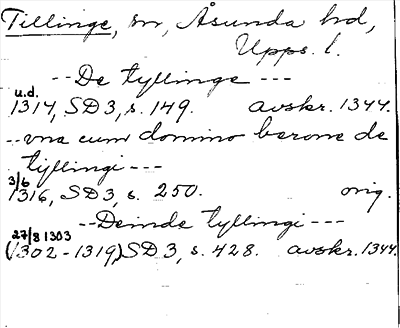 Tillinge, sn, Åsunda hd,
Upps. l.
-- De tyllinge ---
u.d.
1314, SD 3, s. 149. avskr. 1344.
-- vna cum domino barone de
tyllingi ---
3/6
1316, SD 3, s. 250. orig.
-- Deinde tyllingi ---
27/8 1303
(1302-1319) SD 3, s. 428. avskr. 1344.